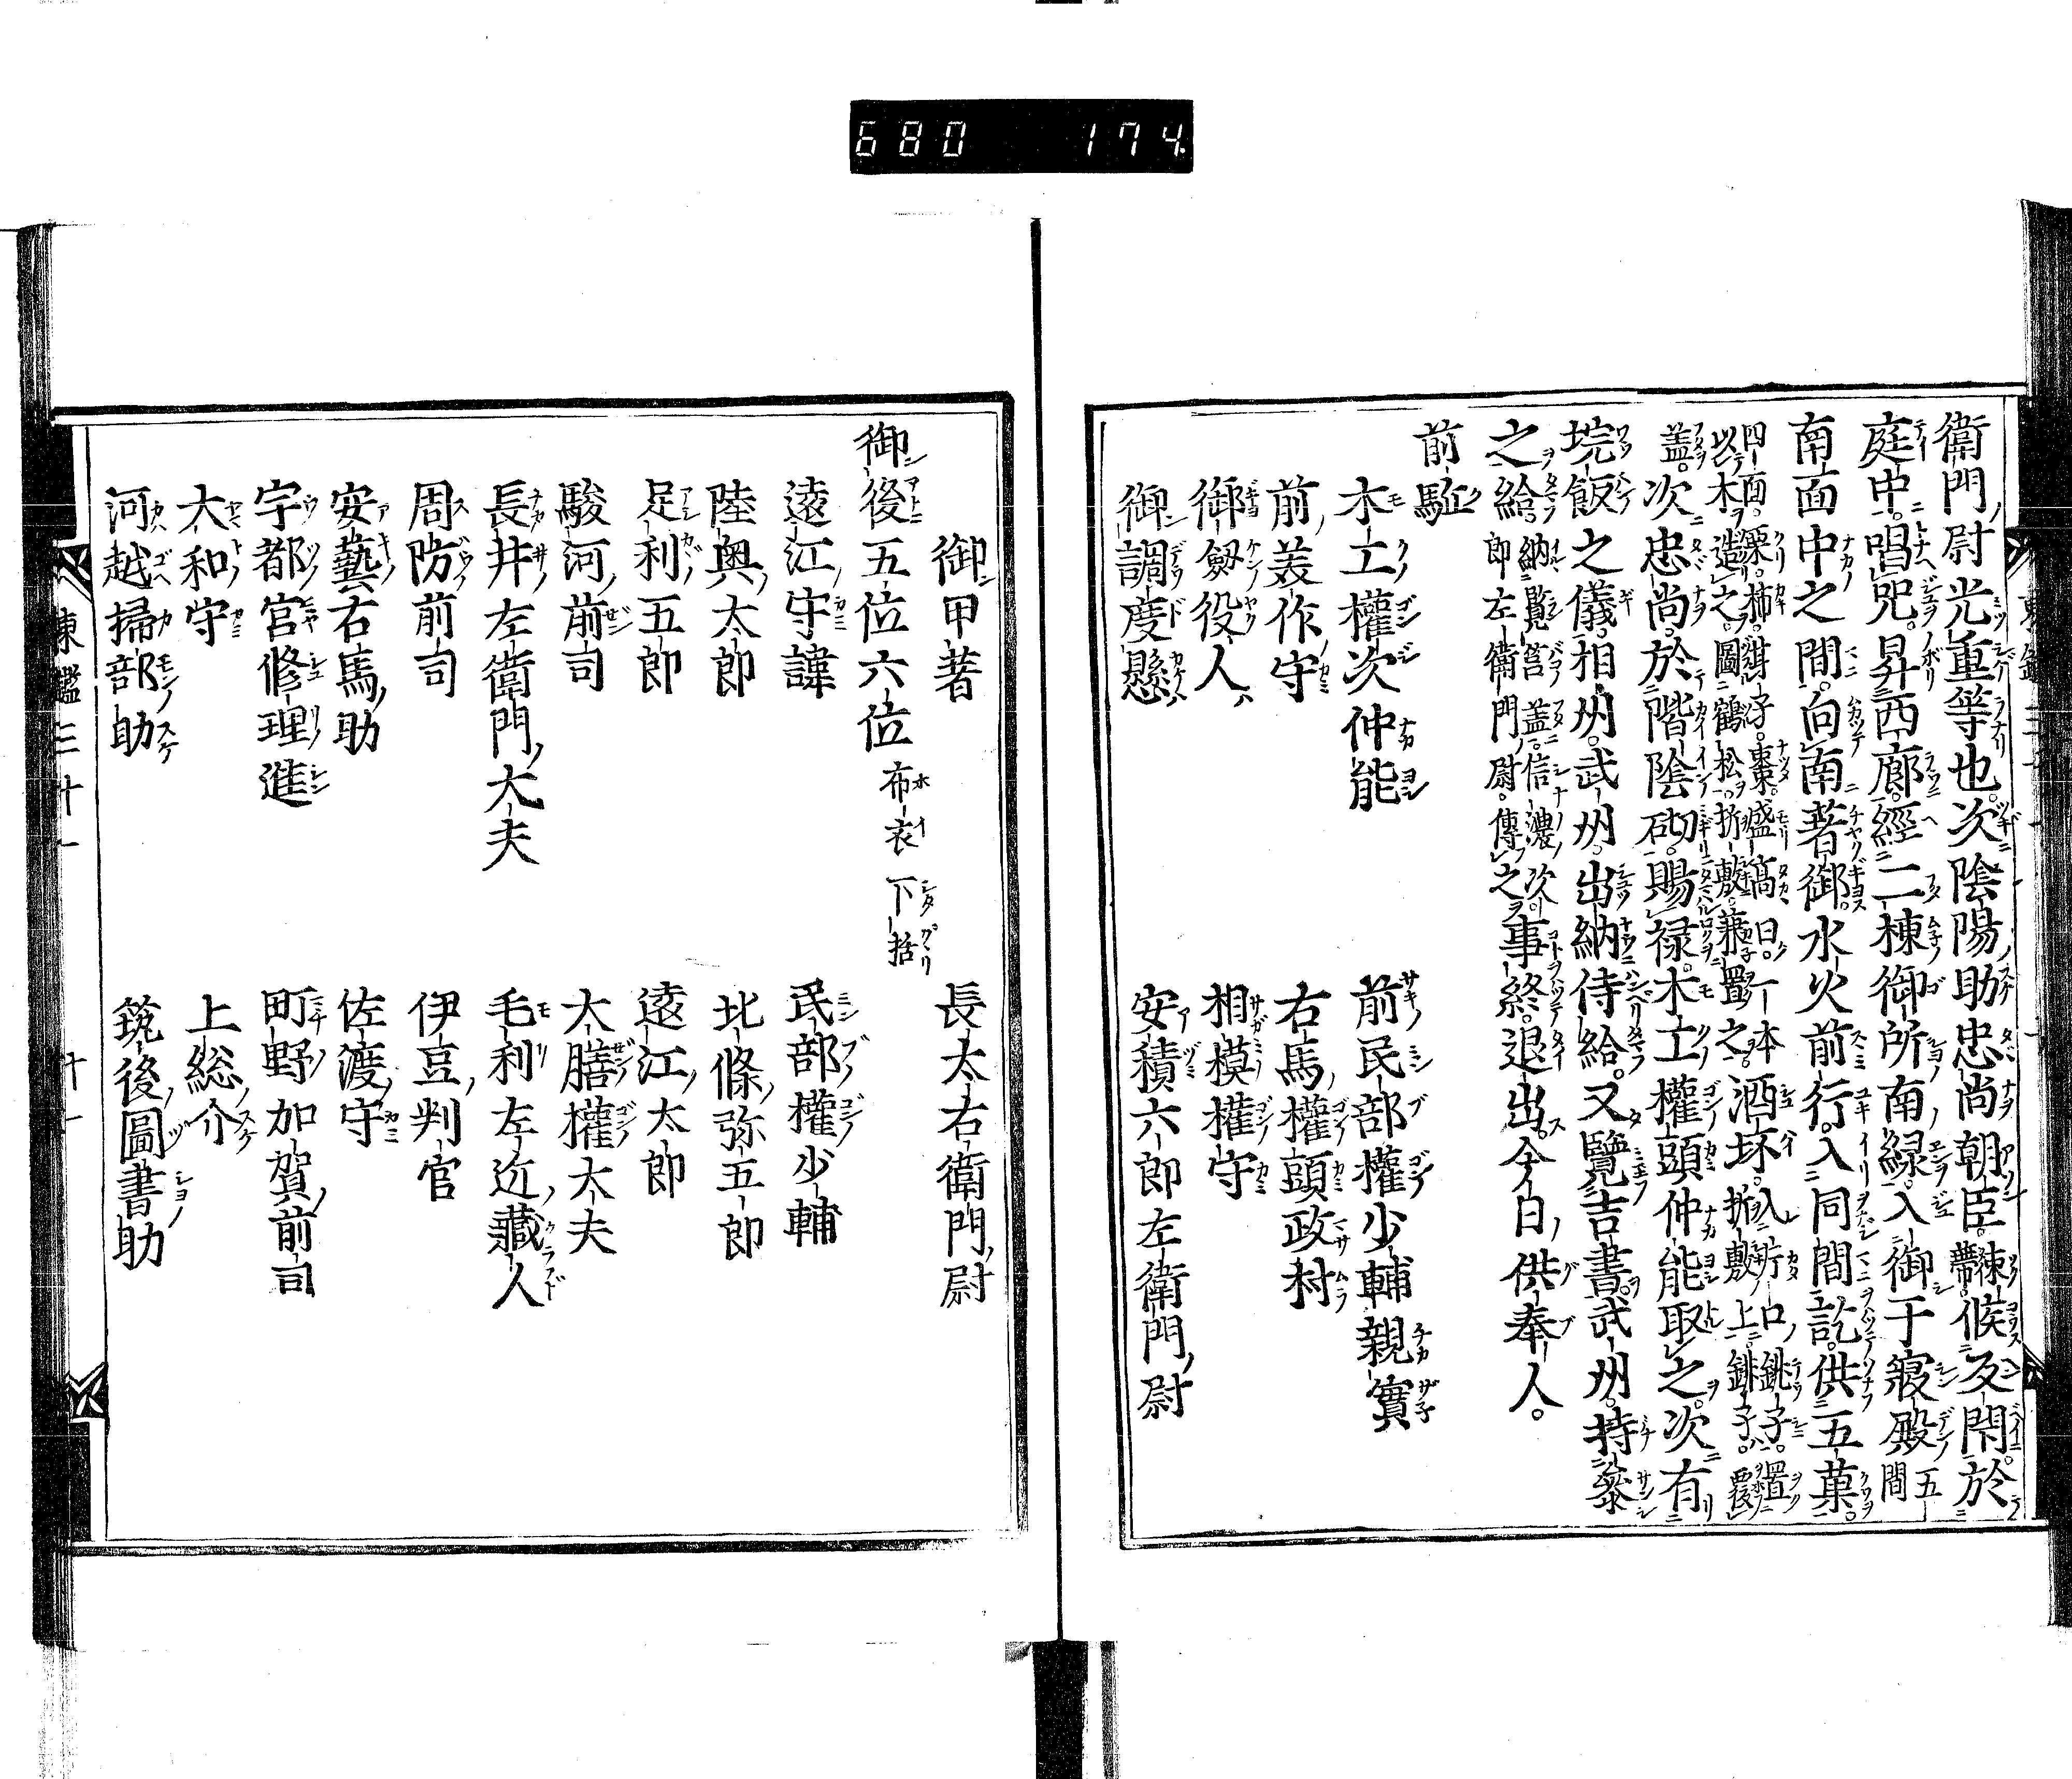 680 174
衛門尉光重等也次陰陽助忠尚朝臣束帶候反閇於
庭中唱呪昇西廊經二棟御所南緣入御于寢殿五間
南面中之間向南著御水火前行入同間訖供五菓
四面栗柑子棗盛高日一本酒坏入片口銚子置
以木造之圖鶴松折敷兼置之折敷上銚子
盖次忠尚於階陰砌賜禄木工權頭仲能取之次有
垸飯之儀相州武州出納侍給又覽吉書武州持參
之給納覽筥盖信濃次郎左衛門尉傳之事終退出今日供奉人
前駈
木工權次仲能 前民部權少輔親實
前美作守 右馬權頭政村
御劔役人 相模權守
御調度懸 安積六郎左衛門尉
御甲著 長太右衛門尉
御後五位六位布衣下括
遠江守諱 民部權少輔
陸奥太郎 北條弥五郎
足利五郎 遠江太郎
駿河前司 大膳權大夫
長井左衛門大夫 毛利左近藏人
周防前司 伊豆判官
安藝右馬助 佐渡守
宇都宮修理進 町野加賀前司
大和守 上総介
河越掃部助 筑後圖書助
東鑑三十一 十一